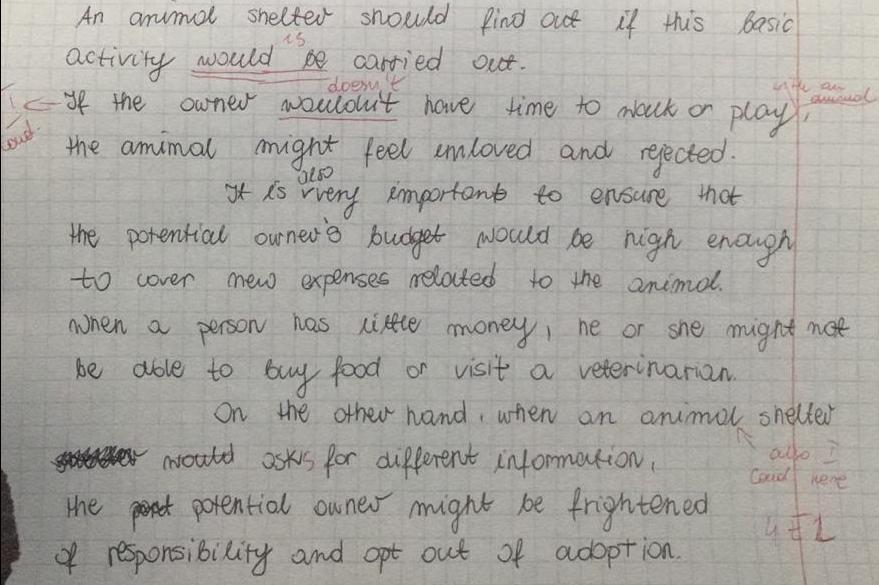 An animal shelter should find out if this basic
is
activity would be carried out.
doesn't
with an
animal
If the owner wouldn't have time to walk or play,
I
Cond.
the amimal might feel unloved and rejected.
also
It is very important to ensure that
the potential owner's budget would be high enough
to cover new expenses related to the animal.
When a person has little money, he or she might not
be able to buy food or visit a veterinarian.
On the other hand, when an animal shelter
would asks for different information,
also I
Cond here
the potential owner might be frightened
of responsibility and opt out of adoption.